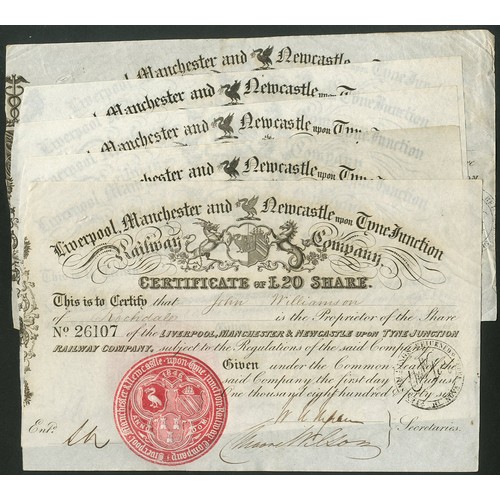 Liverpool, Manchester and Newcastle
Liverpool, Manchester and Newcastle upon Tyne Junction
Liverpool, Manchester and Newcastle upon Tyne Junction
Manchester and Newcastle upon Tyne Junction
Liverpool, Manchester and Newcastle upon Tyne Junction
Railway Company.
CERTIFICATE OF £20 SHARE.
This is to Certify that John Williamson
of Rochdale is the Proprietor of the Share
No 26107 of the LIVERPOOL, MANCHESTER & NEWCASTLE UPON TYNE JUNCTION
RAILWAY COMPANY, subject to the Regulations of the said Company
Given under the Common Seal of the
said Company the first day of August
One thousand eight hundred
Entd.
Secretaries.
Liverpool, Manchester & Newcastle-upon-Tyne Junction Railway Company
1846